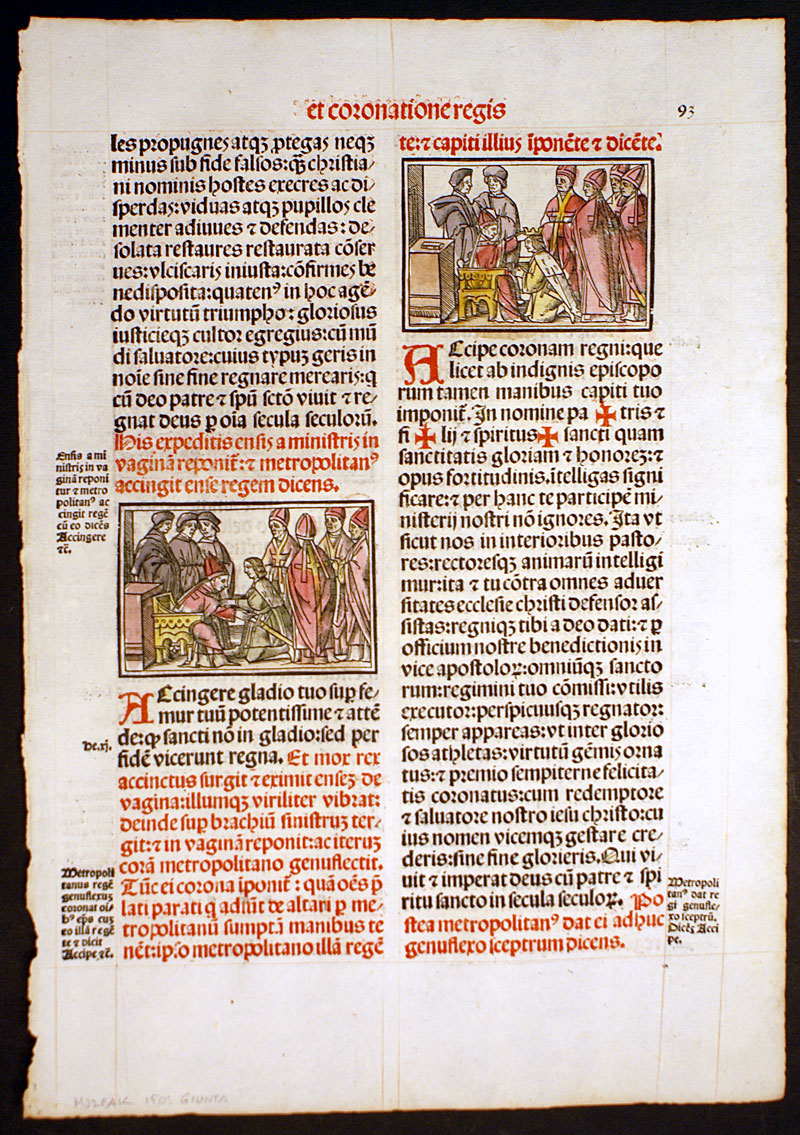 et coronatione regis
93
les propugnes atqꝫ ꝓtegas neqꝫ
minus sub fide falsos: qꝫ christia/
ni nominis hostes execres ac di/
sperdas: viduas atqꝫ pupillos cle
menter adiuues ⁊ defendas: de/
solata restaures restaurata cōser
ues: vlciscaris iniusta: cōfirmes be
nedisposita: quatenꝰ in hoc agē/
do virtutū triumpho: gloriosus
iusticieqꝫ cultor egregius: cū mū
di saluatore: cuius typuꝫ geris in
noīe sine fine regnare merearis: q
cū deo patre ⁊ spū sctō viuit ⁊ re/
gnat deus ꝑ oīa secula seculorū.
His expeditis ensis a ministris in
vaginā reponit̄: ⁊ metropolitanꝰ
accingit ense regem dicens.
Ensis a mi
nistris in va
ginā reponi
tur ⁊ metro
politanꝰ ac
cingit regē
cū eo dicēs
Accingere
⁊c̄.
Accingere gladio tuo suꝑ fe/
mur tuū potentissime ⁊ attē
de: ꝙ sancti nō in gladio: sed per
fidē vicerunt regna. Et mox rex
accinctus surgit ⁊ eximit enseꝫ de
vagina: illumqꝫ viriliter vibrat:
deinde suꝑ brachiū sinistruꝫ ter/
git: ⁊ in vaginā reponit: ac iteruꝫ
corā metropolitano genuflectit.
Tūc ei corona īponit̄: quā oēs p̄
lati parati q adsūt de altari ꝑ me/
tropolitanū sumptā manibus te
nēt: ip̄o metropolitano illā regē
De.xj.
Metropoli
tanus regē
genuflexuꝫ
coronat oī
bꝰ ep̄s cuꝫ
eo illā regē
te ⁊ dicit
Accipe ⁊c̄.
te: ⁊ capiti illius īponēte ⁊ dicēte.
Accipe coronam regni: que
licet ab indignis episcopo
rum tamen manibus capiti tuo
imponit̄. In nomine pa ✠ tris ⁊
fi ✠ lij ⁊ spiritus ✠ sancti quam
sanctitatis gloriam ⁊ honoreꝫ: ⁊
opus fortitudinis. ītelligas signi
ficare: ⁊ per hanc te participē mi/
nisterij nostri nō ignores. Ita vt
sicut nos in interioribus pasto/
res: rectoresqꝫ animarū intelligi
mur: ita ⁊ tu cōtra omnes aduer
sitates ecclesie christi defensor as/
sistas: regniqꝫ tibi a deo dati: ⁊ ꝑ
officium nostre benedictionis in
vice apostoloꝝ: omniūqꝫ sancto
rum: regimini tuo cōmissi: vtilis
executor: perspicuusqꝫ regnator:
semper appareas: vt inter glorio
sos athletas: virtutū gēmis orna
tus: ⁊ premio sempiterne felicita/
tis coronatus: cum redemptore
⁊ saluatore nostro iesu christo: cu
ius nomen vicemqꝫ gestare cre/
deris: sine fine glorieris. Qui vi/
uit ⁊ imperat deus cū patre ⁊ spi
ritu sancto in secula seculoꝝ. Po
stea metropolitanꝰ dat ei adhuc
genuflexo sceptrum dicens.
Metropoli
tanꝰ dat re
gi genufle/
xo sceptrū.
Dicēs Acci
pe.
1503 GIUNTA